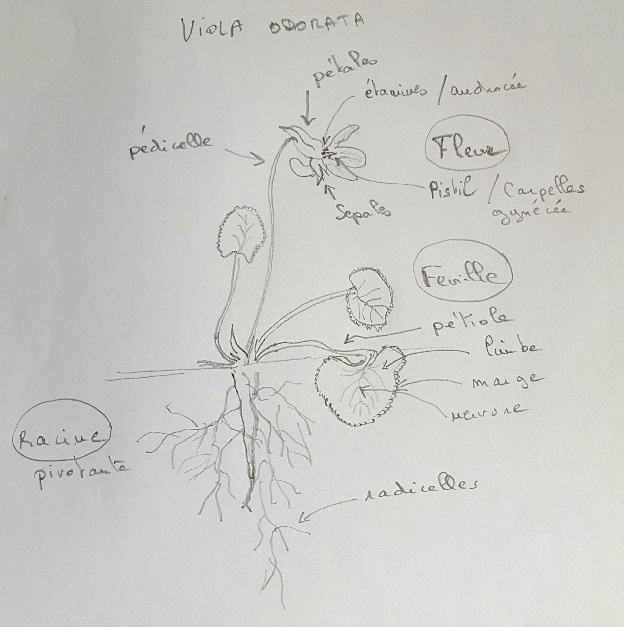 VIOLA ODORATA
pétales
étamines / androcée
pédicelle
Fleur
Pistil / Carpelles
gynécée
Sépales
Feuille
pétiole
limbe
marge
nervure
Racine
pivotante
radicelles